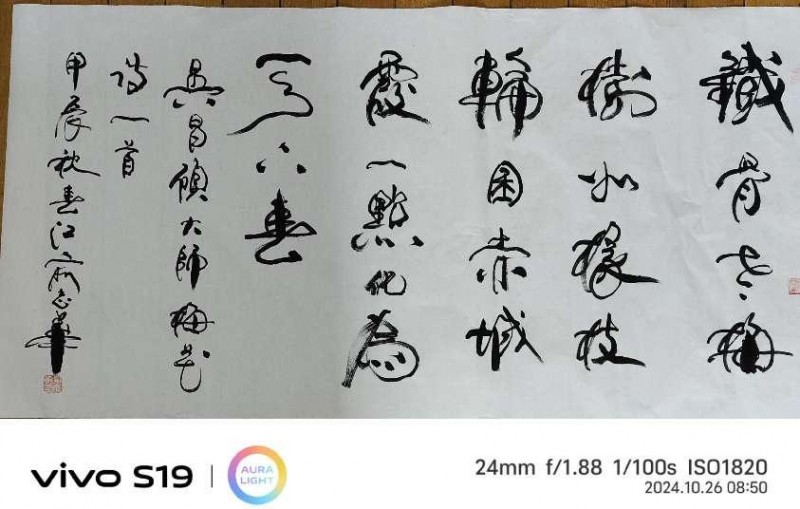 鐵骨老梅
樹如椽枝
輪囷赤城
霞一點化為
天下春
吳昌碩大師梅花
詩一首
甲辰秋春江
vivo S19 | AURA LIGHT
24mm f/1.88 1/100s ISO1820
2024.10.26 08:50